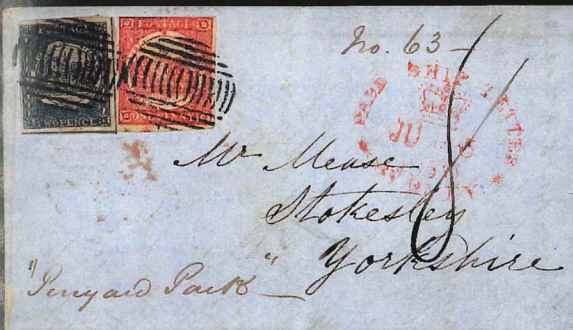 POSTAGE
TWO PENCE
ONE PENNY
No. 63
PAID SHIP LETTER
JU
Mr Mease
Stokesley
Yorkshire
"Penyard Park"